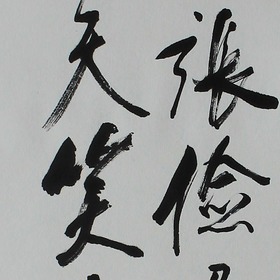 張儉
天笑